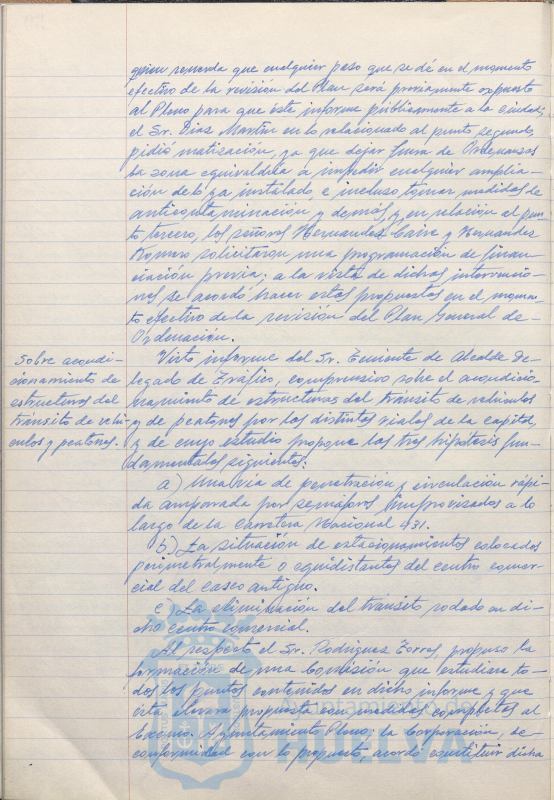 quien recuerda que cualquier paso que se dé en el momento
efectivo de la revisión del Plan será previamente expuesto
al Pleno para que éste informe públicamente a la ciudad;
el Sr. Díaz Martín en lo relacionado al punto segundo,
pidió matización, ya que dejar fuera de Ordenanzas
la zona equivaldría a impedir cualquier amplia-
ción de lo ya instalado, e incluso tomar medidas de
anticontaminación y demás, y en relación al pun-
to tercero, los señores Hernández Caire y Hernández
Romero solicitaron una programación de finan-
ciación previa; a la vista de dichas intervencio-
nes se acordó hacer estas propuestas en el momen-
to efectivo de la revisión del Plan General de-
Ordenación.
Sobre acondi-
cionamiento de
estructuras del
tránsito de vehí
culos y peatones.
Visto informe del Sr. Teniente de Alcalde De-
legado de Tráfico, comprensivo sobre el acondicio-
namiento de estructuras del tránsito de vehículos
y de peatones por los distintos viales de la capital,
y de cuyo estudio propone las tres hipótesis fun-
damentales siguientes:
a) Una vía de penetración y circulación rápi-
da amparada por semáforos improvisados a lo
largo de la Carretera Nacional 431.
b) La situación de estacionamientos colocados
perimetralmente o equidistantes del centro comer-
cial del casco antiguo.
c) La eliminación del tránsito rodado en di-
cho centro comercial.
Al respecto el Sr. Rodríguez Torres propuso la
formación de una Comisión que estudiara to-
dos los puntos contenidos en dicho informe y que
ésta elevara propuesta con medidas completas al
Excmo. Ayuntamiento Pleno; la Corporación, de
conformidad con lo propuesto, acordó constituir dicha
Ayuntamiento de
HUELVA